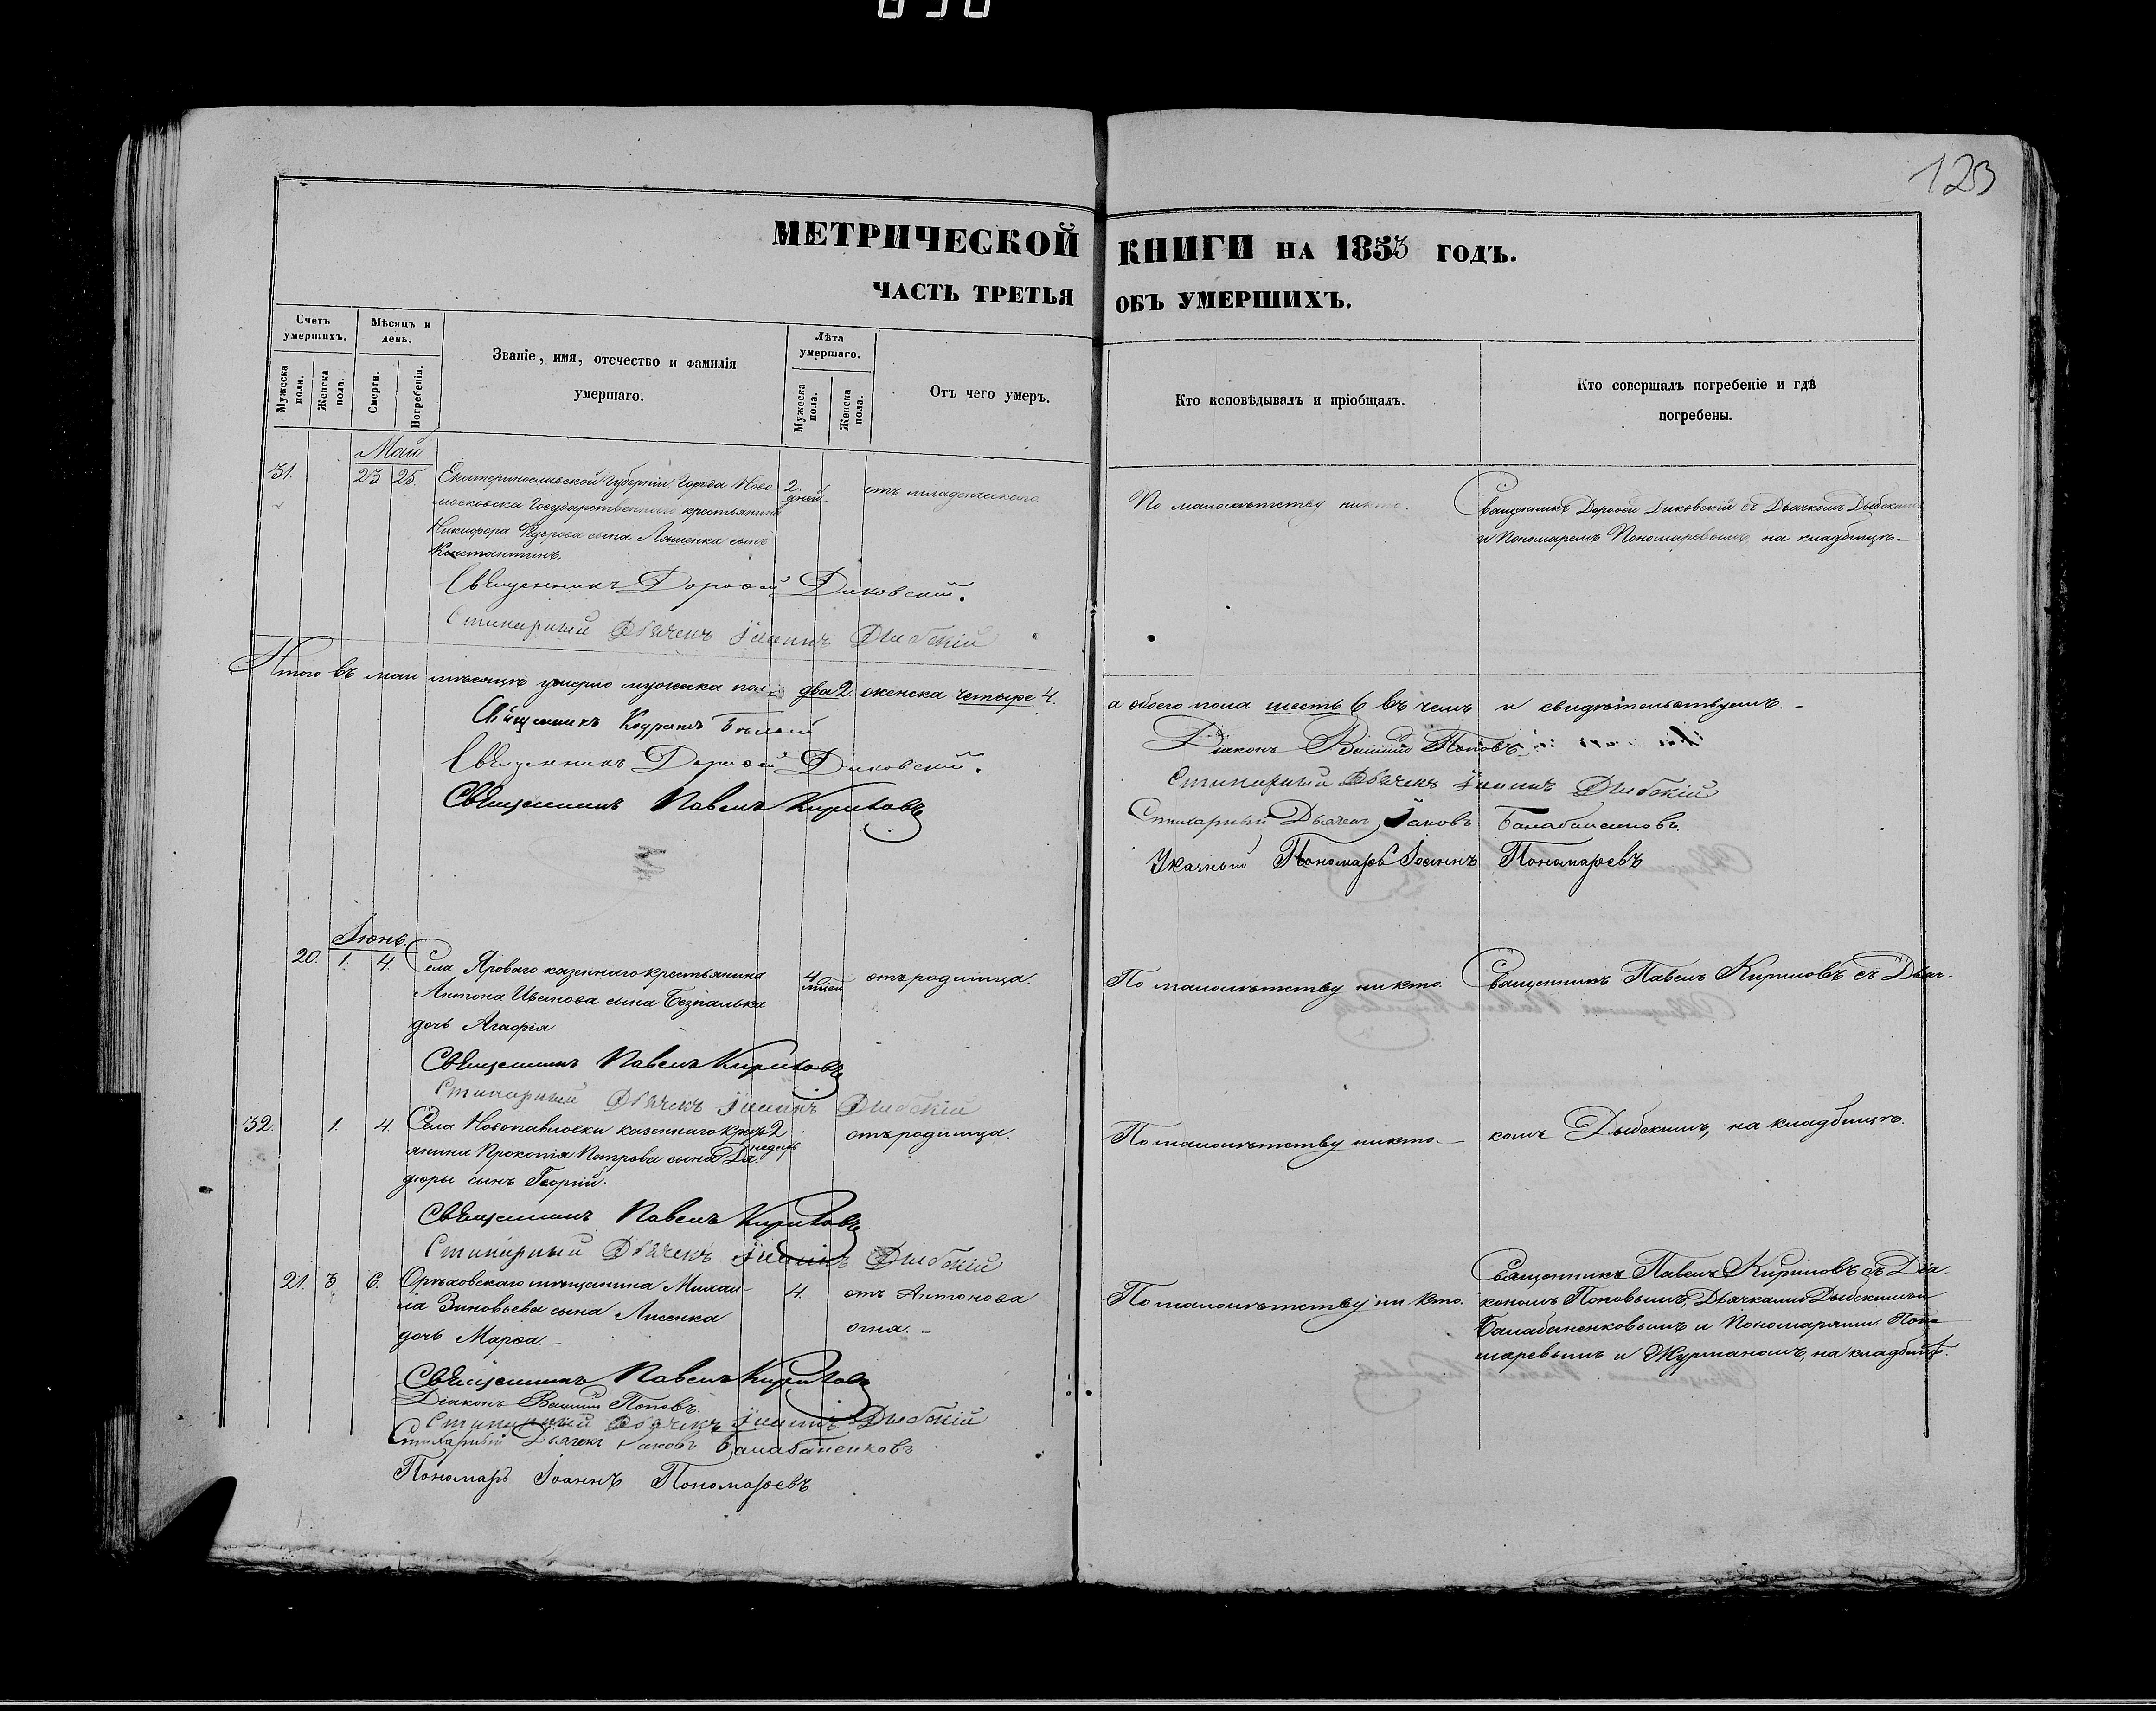 123
МЕТРИЧЕСКОЙ КНИГИ НА 1853 ГОДЪ.
ЧАСТЬ ТРЕТЬЯ ОБЪ УМЕРШИХЪ.
Счетъ умершихъ.
Мужеска пола.
Женска пола.
Мѣсяцъ и день.
Смерти.
Погребенія.
Званіе, имя, отечество и фамилія умершаго.
Лѣта умершаго.
Мужеска пола.
Женска пола.
Отъ чего умеръ.
Кто исповѣдывалъ и пріобщалъ.
Кто совершалъ погребеніе и гдѣ погребены.
Май
31. 23 25. Екатеринославской Губерніи Города Ново 2. дней отъ младенческаго По малолѣтству никто. Священникъ Дорофей Диковскій съ Дьячкомъ Дыбскимъ
московска Государственнаго крестьянина и Пономаремъ Пономаревымъ, на кладбищѣ.-
Никифора Ѳедорова сына Ляшенка сынъ
Константинъ.
Священникъ Дорофей Диковскій.
Стихарный Дьячекъ Іоаннъ Дыбскій
Итого въ маи мѣсяцѣ умерло мужеска пола два 2. женска четыре 4. а обоего пола шесть 6 въ чемъ и свидѣтельствуемъ.-
Священникъ Кодратъ Бѣлый
Священникъ Дорофей Диковскій.
Священникъ Павелъ Кириловъ
Діаконъ Поповъ
Стихарный Дьячекъ Іоаннъ Дыбскій
Стихарный Дьячекъ Іаковъ Балабаненковъ.
Указный Пономарь Іоаннъ Пономаревъ
Іюнь.
20. 1. 4. Села Яроваго казеннаго крестьянина 4 отъ родимца. По малолѣтству никто. Священникъ Павелъ Кириловъ съ Дьяч-
Антона Иванова сына Безпалька
дочь Агафія
Священникъ Павелъ Кириловъ
Стихарный Дьячекъ Іоаннъ Дыбскій
32. 1. 4. Села Новопавловки казеннаго крест- 2 недѣль отъ родимца. По малолѣтству никто.- комъ Дыбскимъ, на кладбищѣ.
янина Прокопія Петрова сына
сынъ Георгій.-
Священникъ Павелъ Кириловъ
Стихарный Дьячекъ Іоаннъ Дыбскій
21. 3. 6. Орѣховскаго мѣщанина Михаи- 4. отъ Антонова По малолѣтству ни кто. Священникъ Павелъ Кириловъ съ Діа-
ла Зиновьева сына Лисенка огня.- кономъ Поповымъ, Дьячками Дыбскимъ и
дочь Марфа.- Балабаненковымъ и Пономарями Поно-
маревымъ и Журманомъ, на кладбищѣ.
Священникъ Павелъ Кириловъ
Діаконъ Поповъ.
Стихарный Дьячекъ Іоаннъ Дыбскій
Стихарный Дьячекъ Іаковъ Балабаненковъ
Пономарь Іоаннъ Пономаревъ